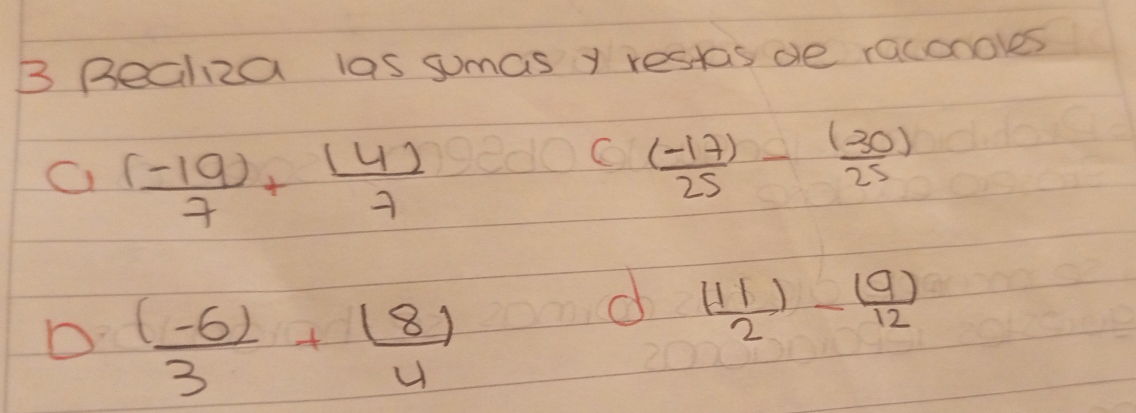 3 Realiza las sumas y restas de raconales
a (-19)/7 + (4)/7
c (-17)/25 - (30)/25
b (-6)/3 + (8)/4
d (11)/2 - (9)/12